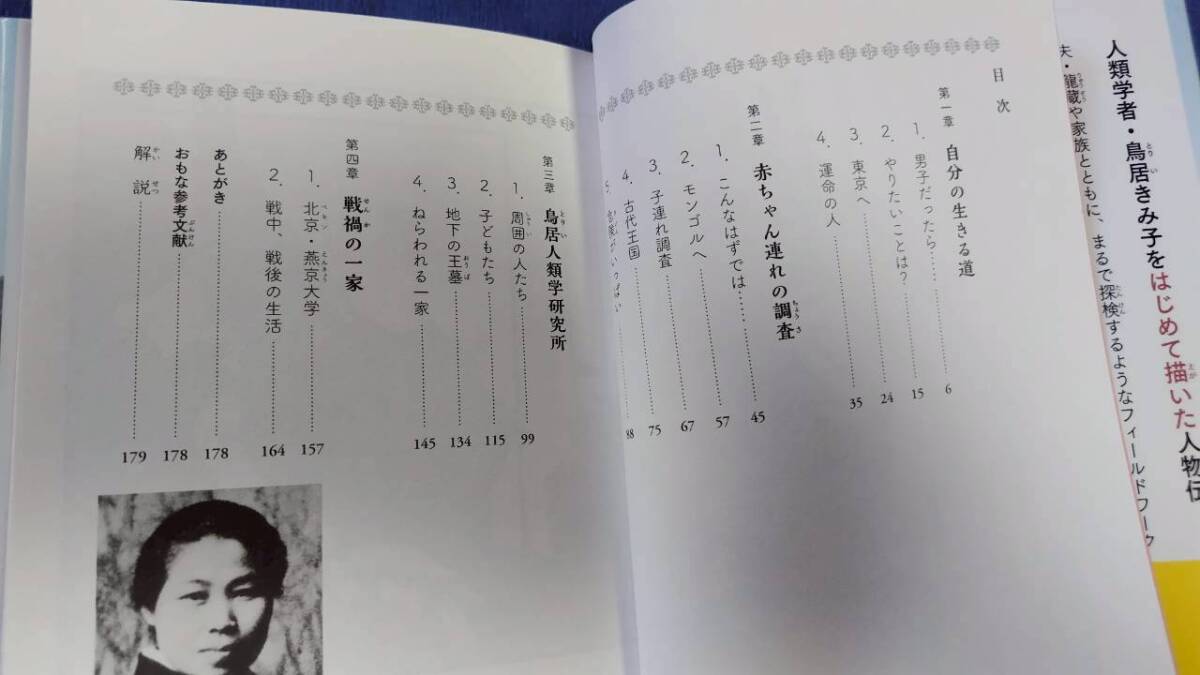 人類学者・鳥居きみ子をはじめて描いた人物伝
夫・龍蔵や家族とともに、まるで探検するようなフィールドワーク
目次
第一章 自分の生きる道
1. 男子だったら……6
2. やりたいことは?……15
3. 東京へ……24
4. 運命の人……35
第二章 赤ちゃん連れの調査
1. こんなはずでは……45
2. モンゴルへ……57
3. 子連れ調査……67
4. 古代王国……75
5. がいっぱい……88
第三章 鳥居人類学研究所
1. 周囲の人たち……99
2. 子どもたち……115
3. 地下の王墓……134
4. ねらわれる一家……145
第四章 戦禍の一家
1. 北京・燕京大学……157
2. 戦中、戦後の生活……164
あとがき……178
おもな参考文献……178
解説……179